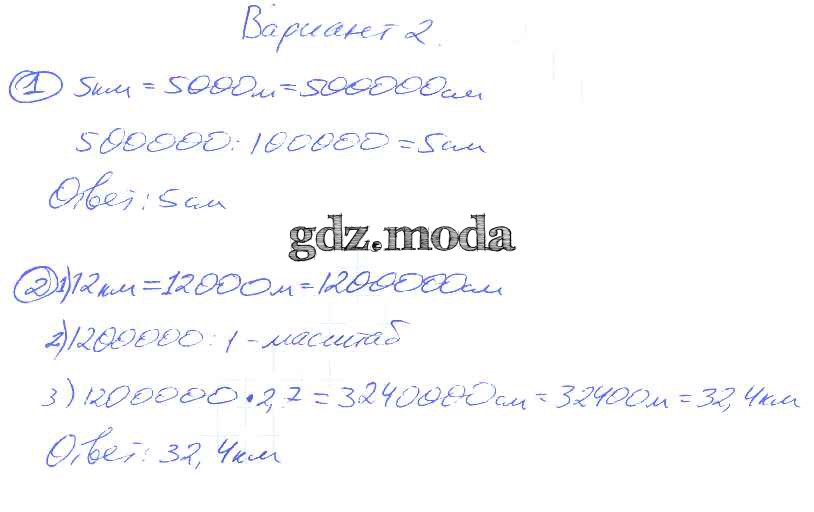 Вариант 2.
1 5км = 5000м = 500000см
500000 : 100000 = 5см
Ответ: 5см
gdz.moda
2 1) 12км = 12000м = 1200000см
2) 1200000 : 1 - масштаб
3) 1200000 • 2,7 = 3240000см = 32400м = 32,4км
Ответ: 32,4км